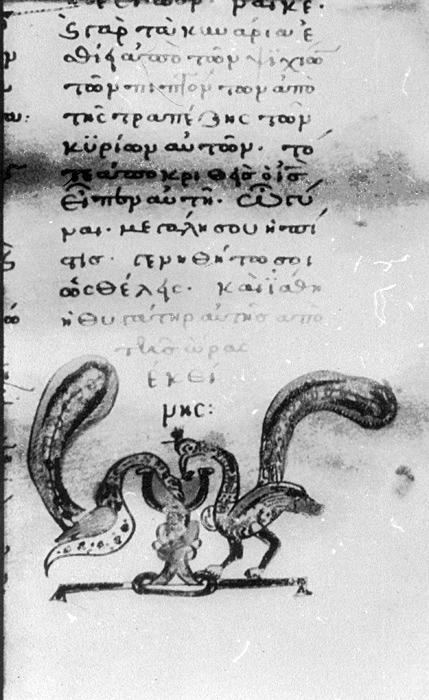 ναὶ κε·
ϗ γὰρ τὰ κυνάρια ἐ
σθίει ἀπὸ τῶν ψιχίων
τῶν πιπτόντων ἀπὸ
τῆς τραπέζης τῶν
κϋρίων αὐτῶν· τό
τε ἀποκριθεὶς ὁ ις
εἶπεν αὐτῆ· ὦ γύ
ναι· μεγάλη σου ἡ πί
στις· γενηθήτω σοι
ὡς θέλεις· καὶ ϊάθη
ἡ θυγάτηρ αὐτῆς ἀπὸ
τῆς ὥρας
ἐκεί
νης: